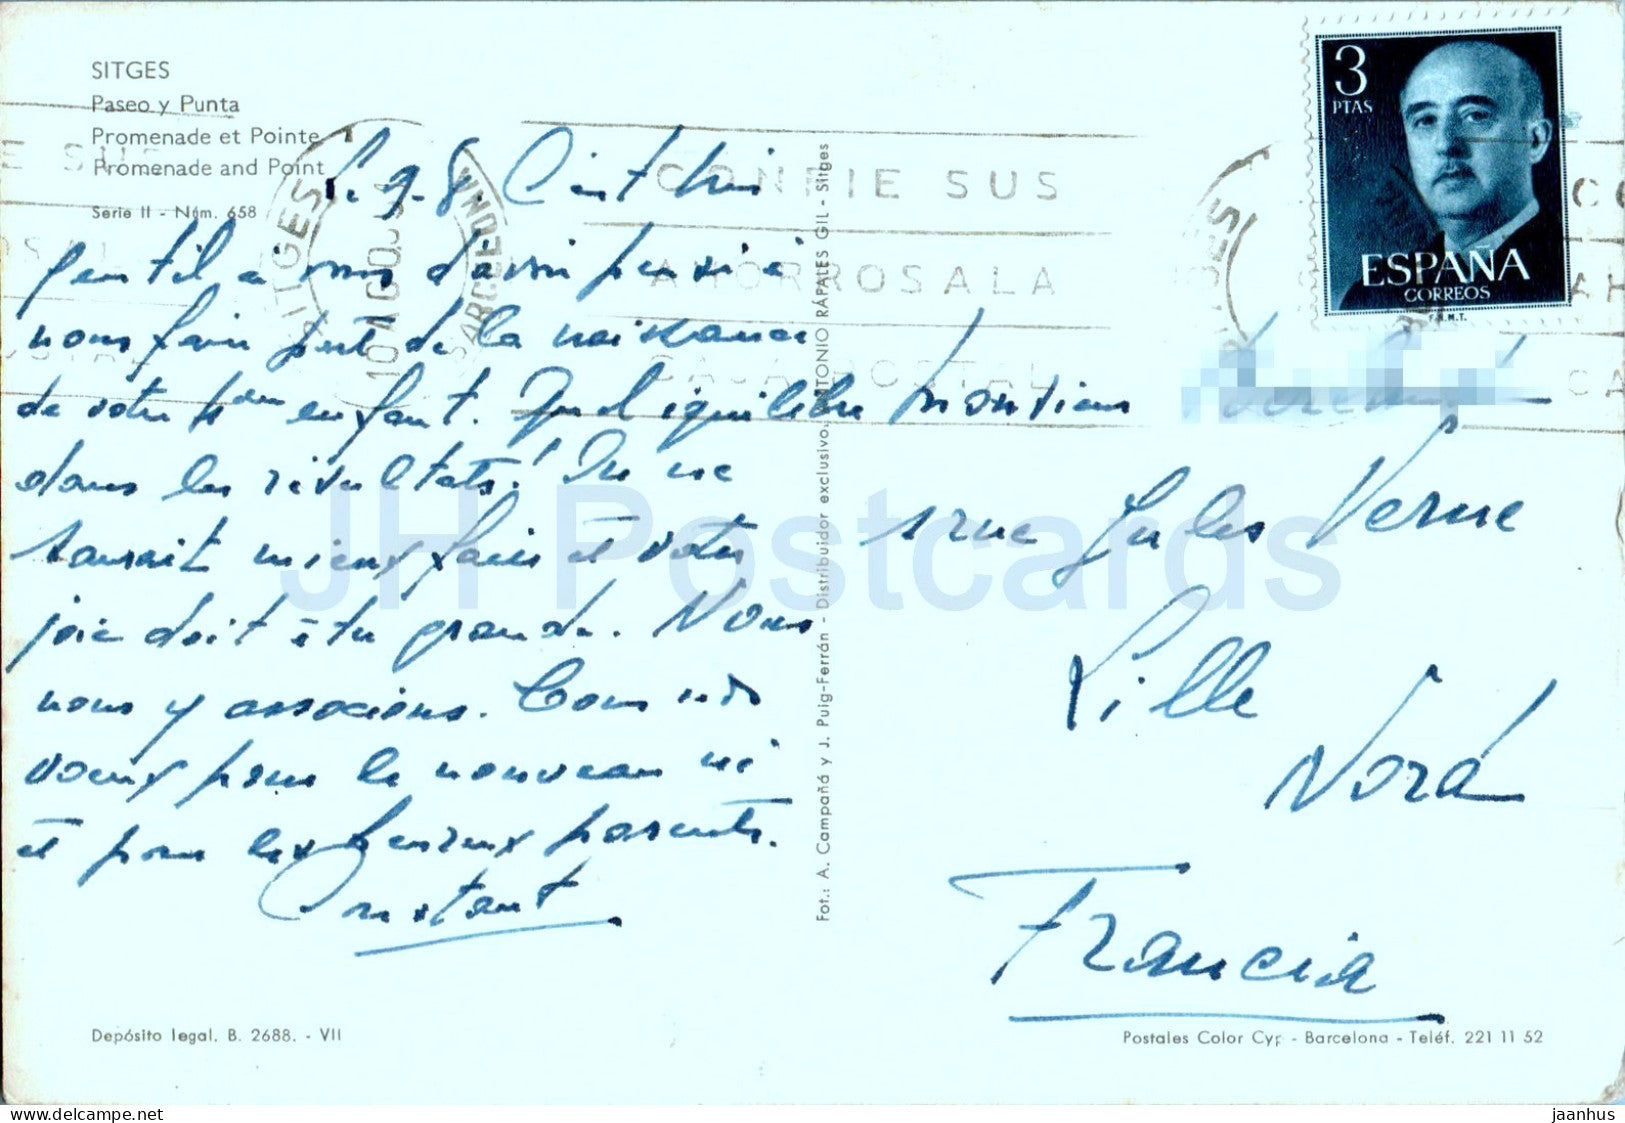 SITGES
Paseo y Punta
Promenade et Pointe
Promenade and Point
Serie II - Núm. 658
3
PTAS
ESPAÑA
CORREOS
F.N.M.T.
SITGES
10 AGO
BARCELONA
CONFIE SUS
AHORROS A LA
CAJA POSTAL
C'est bien
gentil à vous d'avoir pensé à
nous faire part de la naissance
de votre enfant. Quel équilibre
dans les résultats! On ne
saurait mieux faire et votre
joie doit être grande. Nous
nous y associons. Tous nos
voeux pour le nouveau né
et pour les heureux parents.
Constant
Monsieur
1 rue Jules Verne
Lille
Nord
Francia
Fot.: A. Campañá y J. Puig-Ferrán - Distribuidor exclusivo. ANTONIO RÁPALES GIL - Sitges
Depósito legal. B. 2688. - VII
Postales Color Cyp - Barcelona - Teléf. 221 11 52
JH Postcards
https://delcampe.net/store/jhpostcards
jaanhus